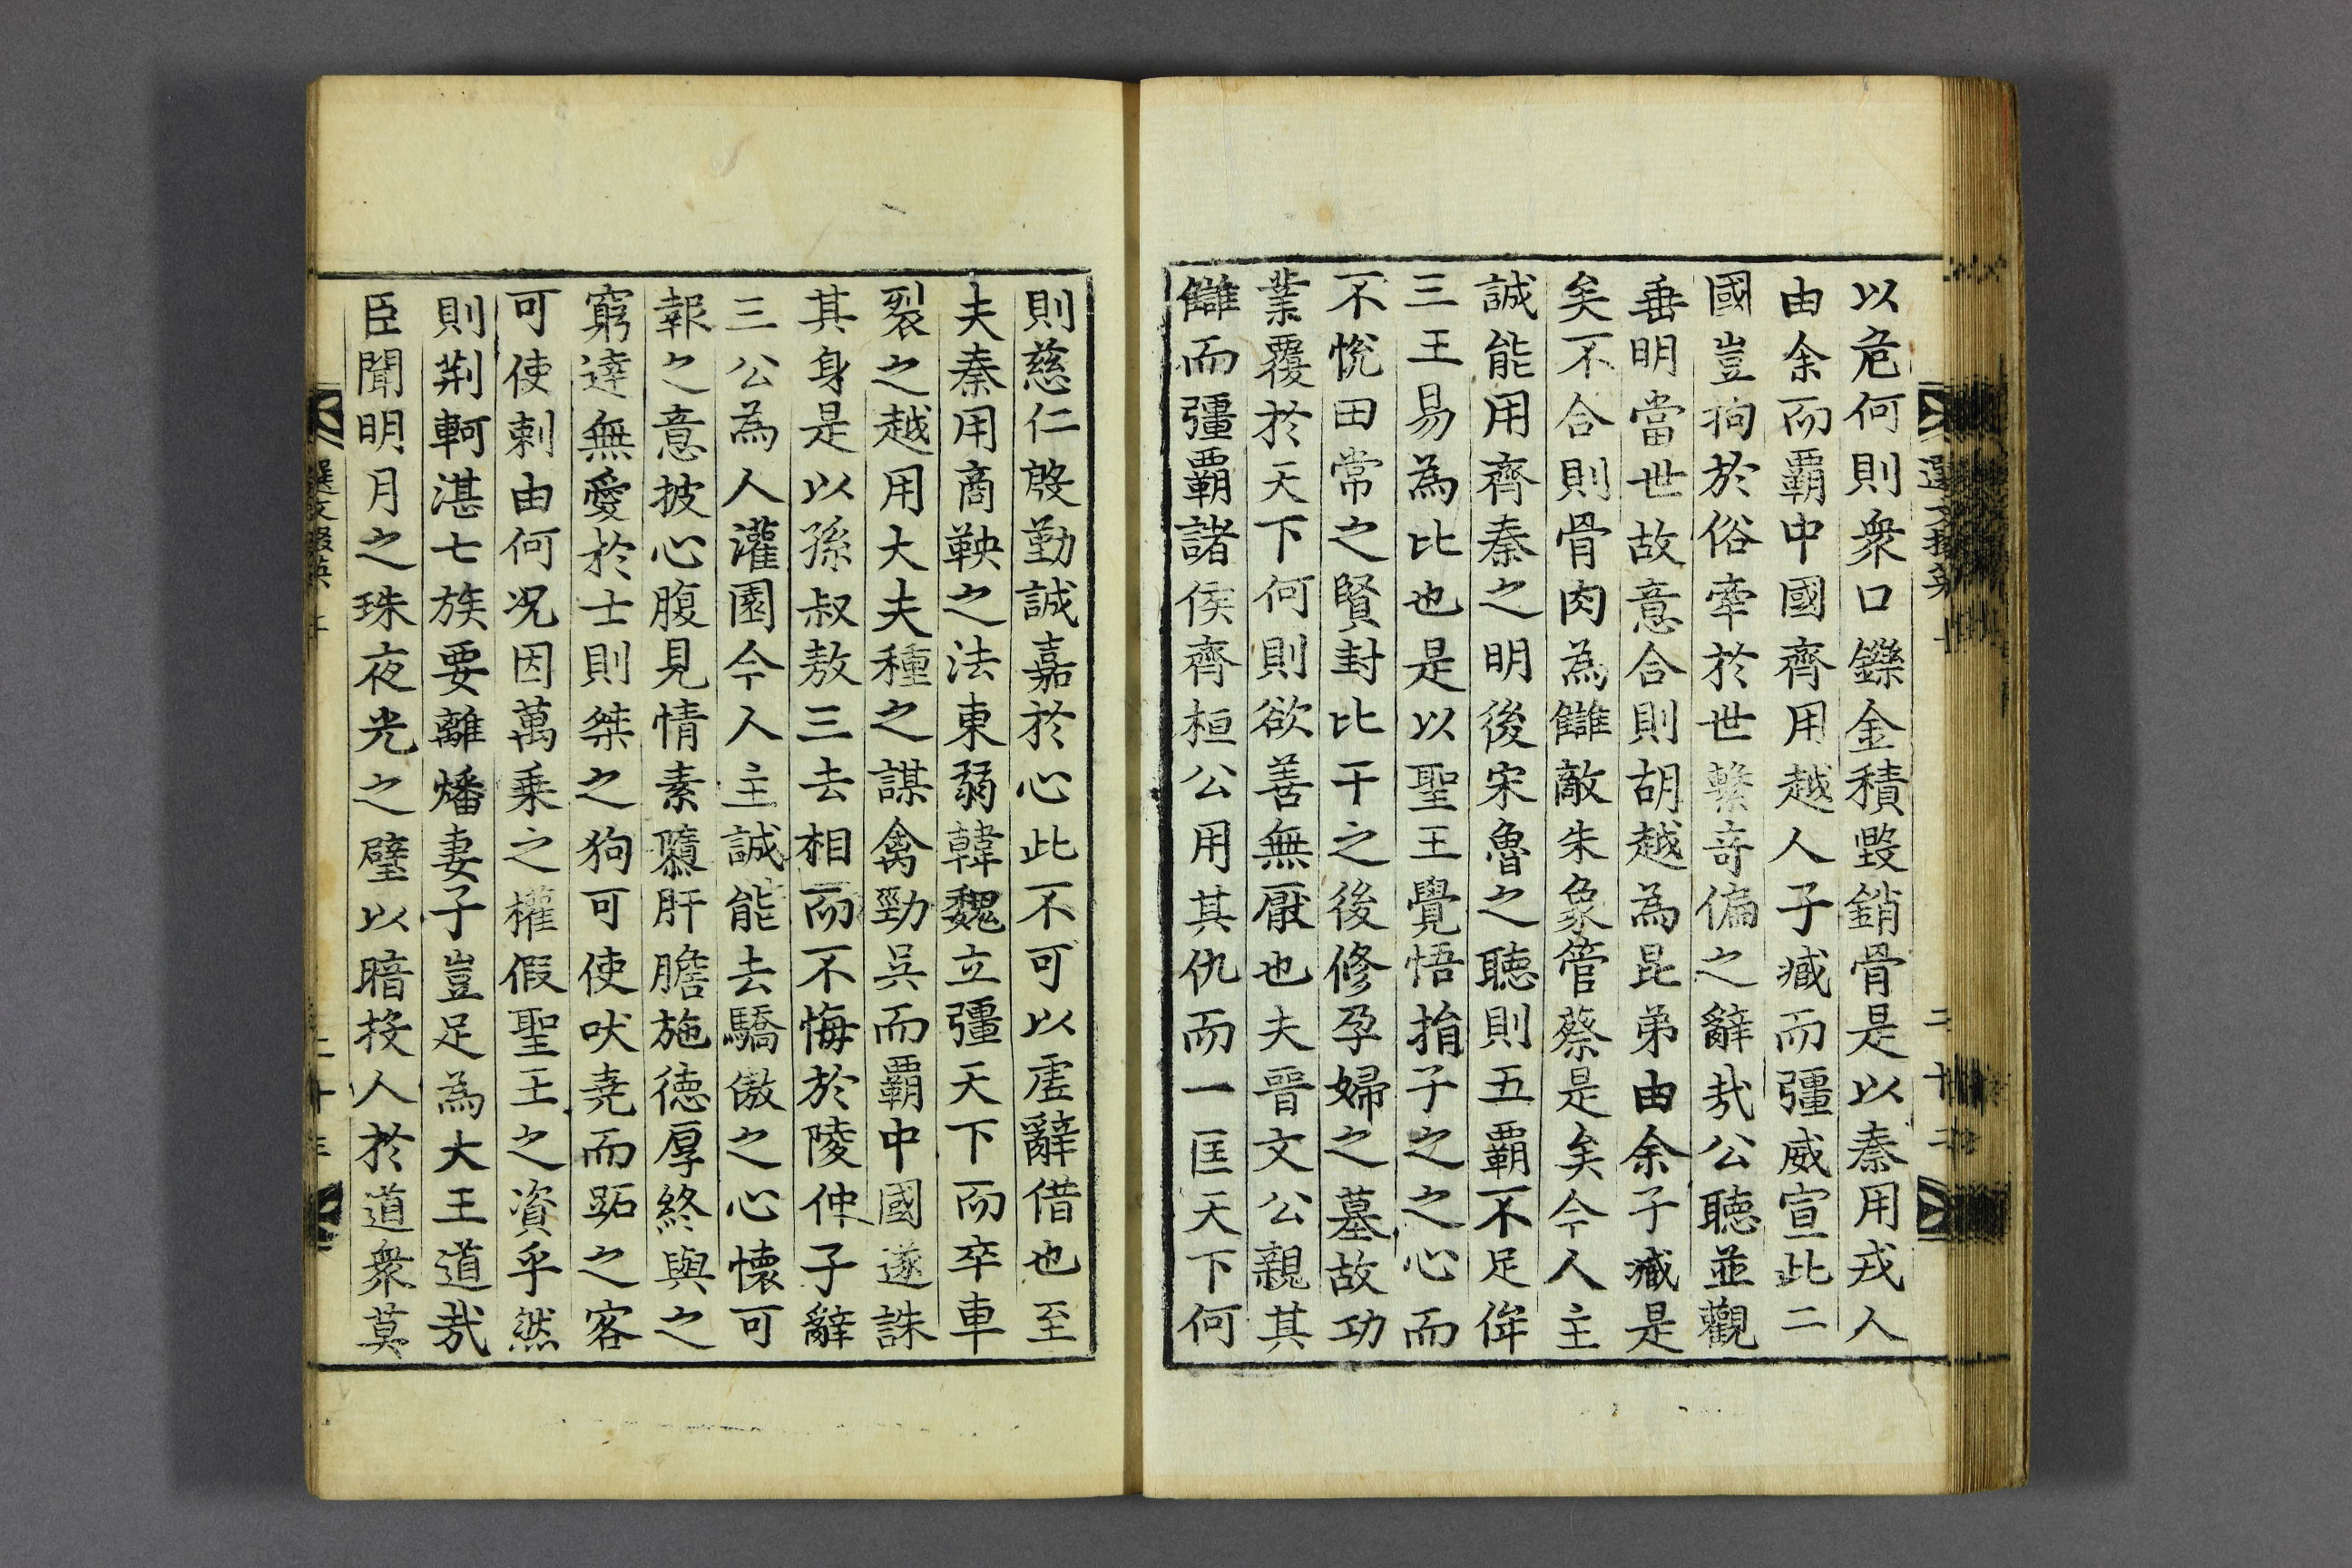 以危何則衆口鑠金積毀銷骨是以秦用戎人
由余而覇中國齊用越人子臧而彊威宣此二
國豈拘於俗牽於世繫奇偏之辭哉公聽並觀
垂明當世故意合則胡越為昆弟由余子臧是
矣不合則骨肉為讎敵朱象管蔡是矣今人主
誠能用齊秦之明後宋魯之聽則五覇不足侔
三王易為比也是以聖王覺悟捐子之之心而
不恱田常之賢封比干之後修孕婦之墓故功
業覆於天下何則欲善無厭也夫晉文公親其
讎而彊覇諸侯齊桓公用其仇而一匡天下何
則慈仁殷勤誠嘉於心此不可以虛辭借也至
夫秦用商鞅之法東弱韓魏立彊天下而卒車
裂之越用大夫種之謀禽勁吳而覇中國遂誅
其身是以孫叔敖三去相而不悔於陵仲子辭
三公為人灌園今人主誠能去驕傲之心懷可
報之意披心腹見情素隳肝膽施德厚終與之
窮達無愛於士則桀之狗可使吠堯而跖之客
可使刺由何況因萬乘之權假聖王之資乎然
則荆軻湛七族要離燔妻子豈足為大王道哉
臣聞明月之珠夜光之璧以暗投人於道衆莫